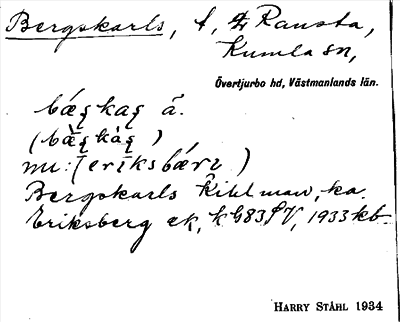 Bergskarls, t, Ransta,
Kumla sn,
Övertjurbo hd, Västmanlands län.
bæșkaș ā.
(bæ̀șkàș )
nu: (eriksbæri )
Bergskarls Kihlman, ka.
Eriksberg ek, kG83SV, 1933 kb.
HARRY STÅHL 1934